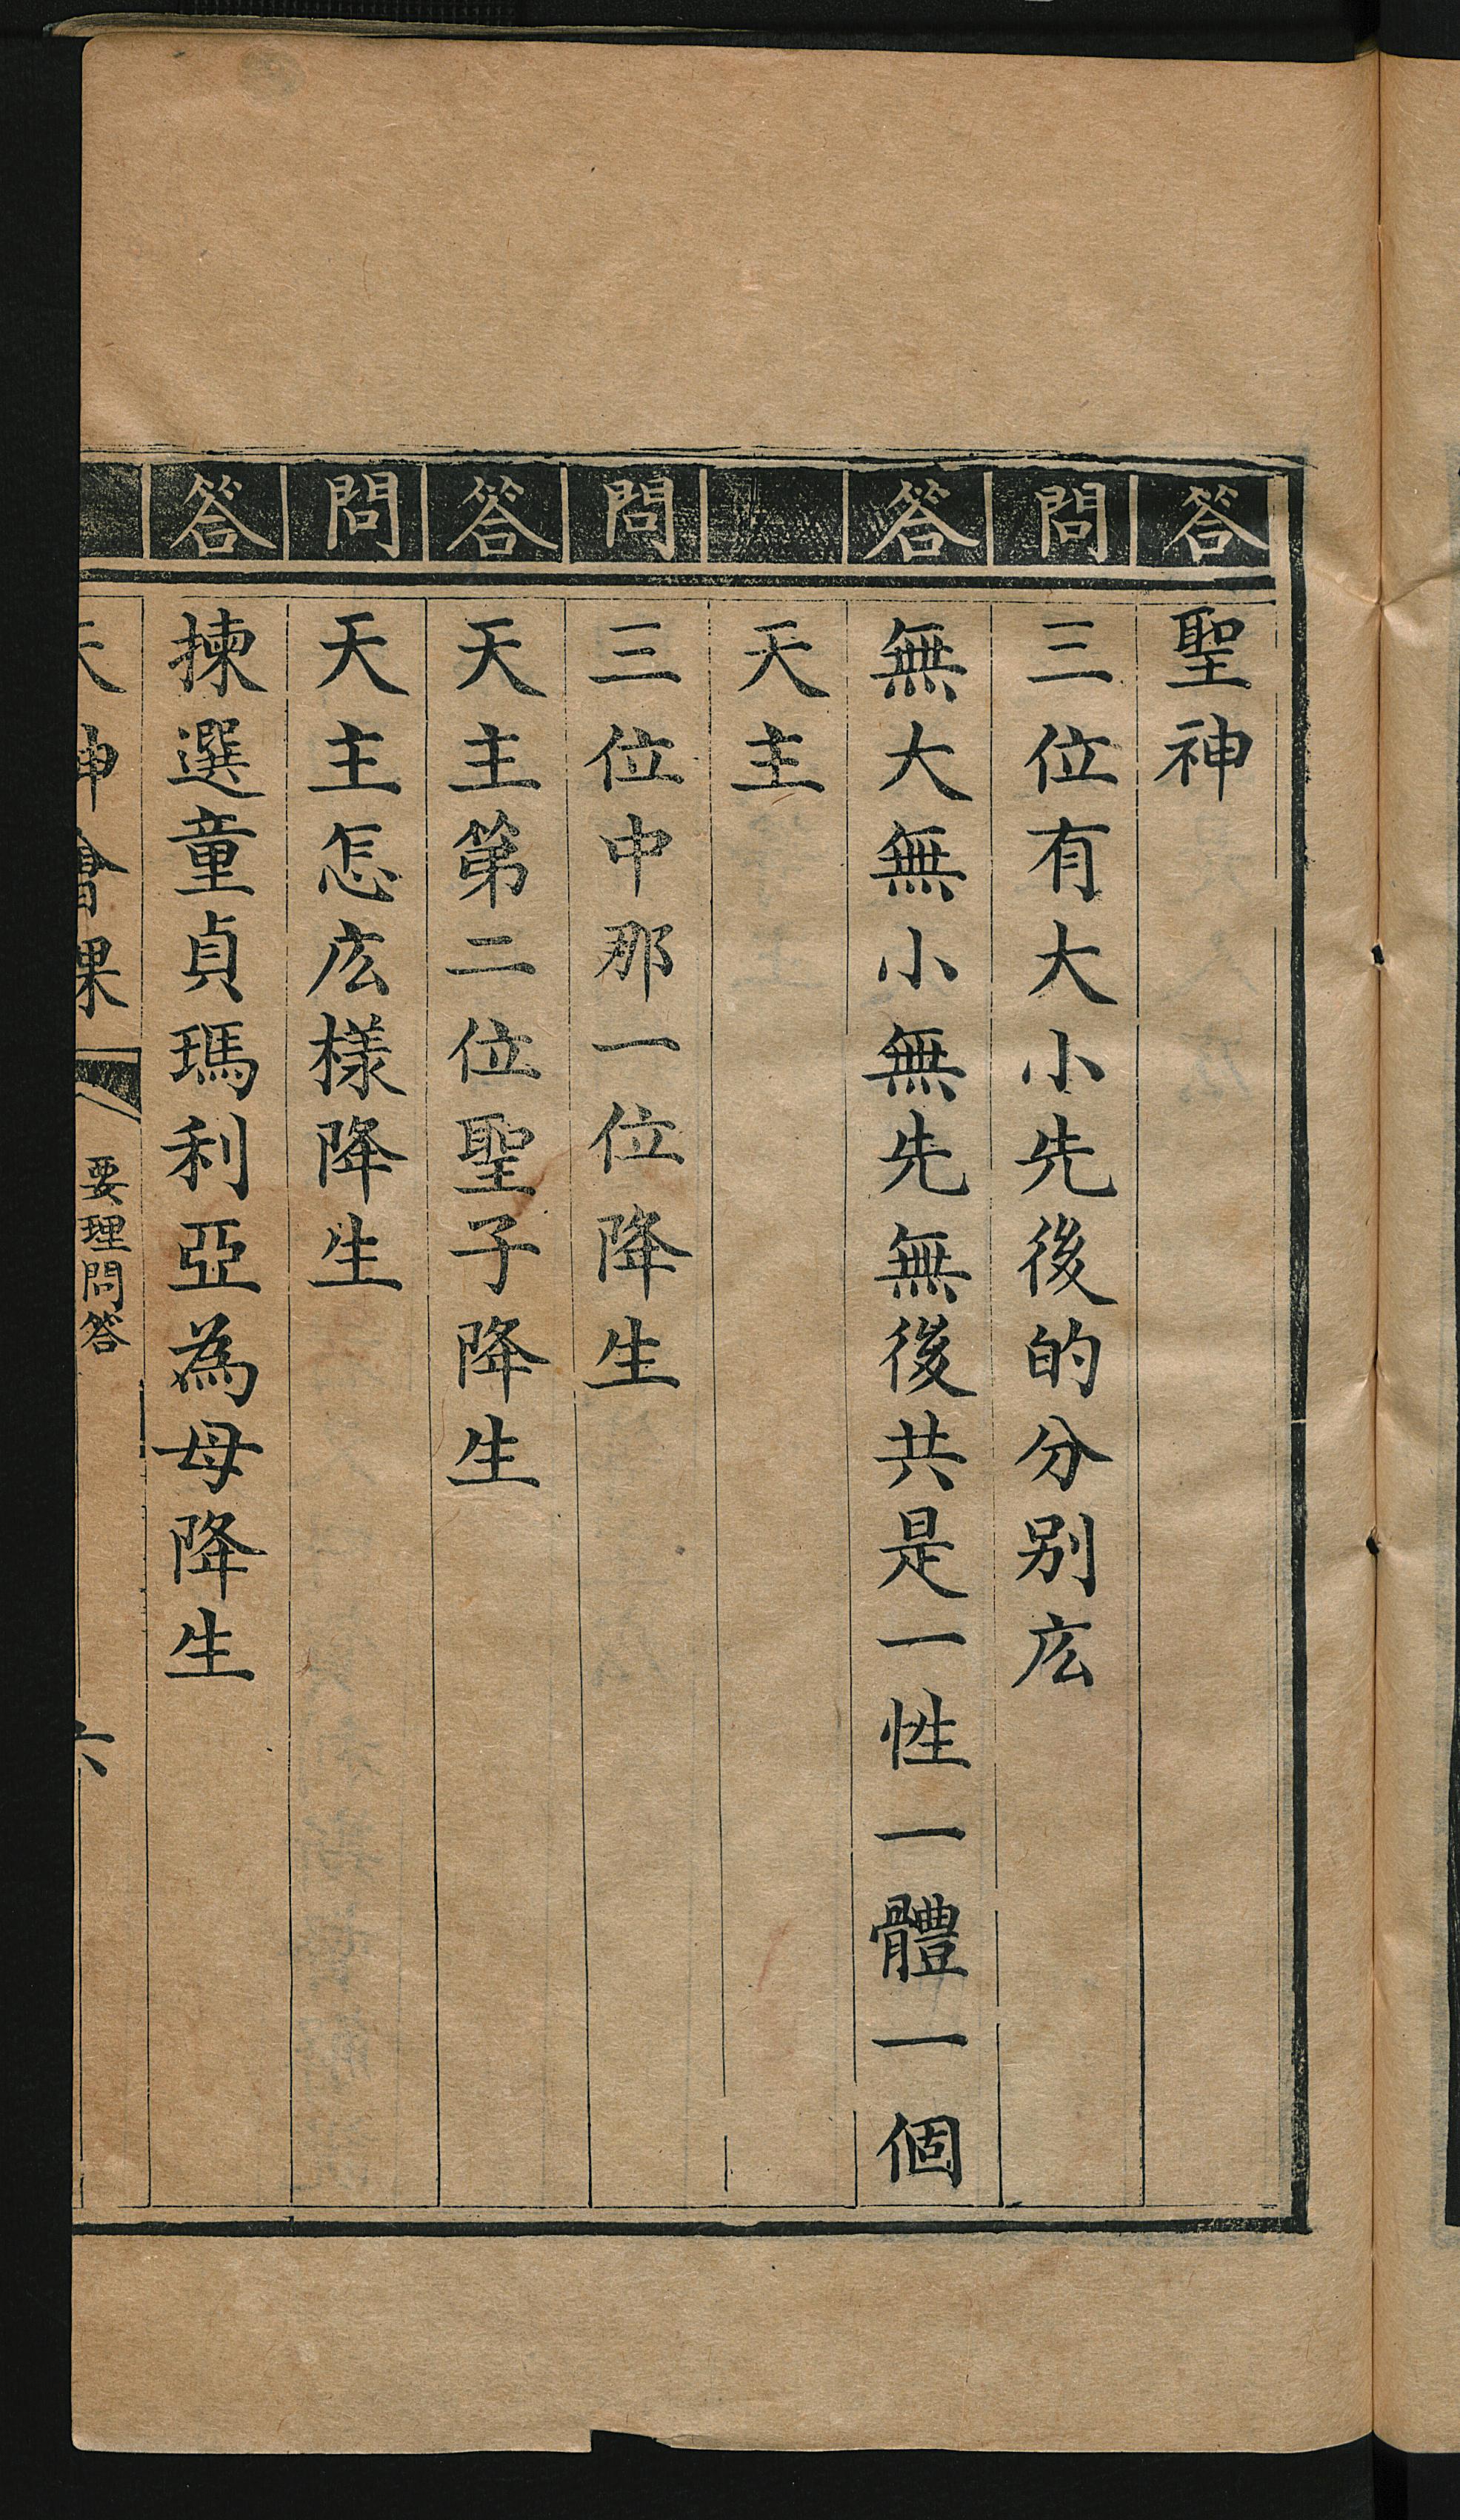 答 聖神
問 三位有大小先後的分别庅
答 無大無小無先無後共是一性一體一個
天主
問 三位中那一位降生
答 天主第二位聖子降生
問 天主怎庅樣降生
答 揀選童貞瑪利亞為母降生
天神會課 要理問答 六